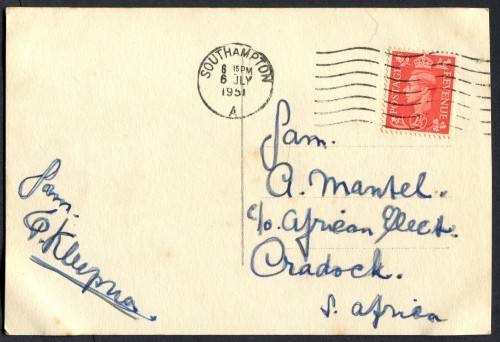 SOUTHAMPTON
6 15PM
6 JLY
1951
A
POSTAGE REVENUE
2½
Fam.
A. Mantel.
c/o African Elect.
Cradock.
S. Africa
Fam.